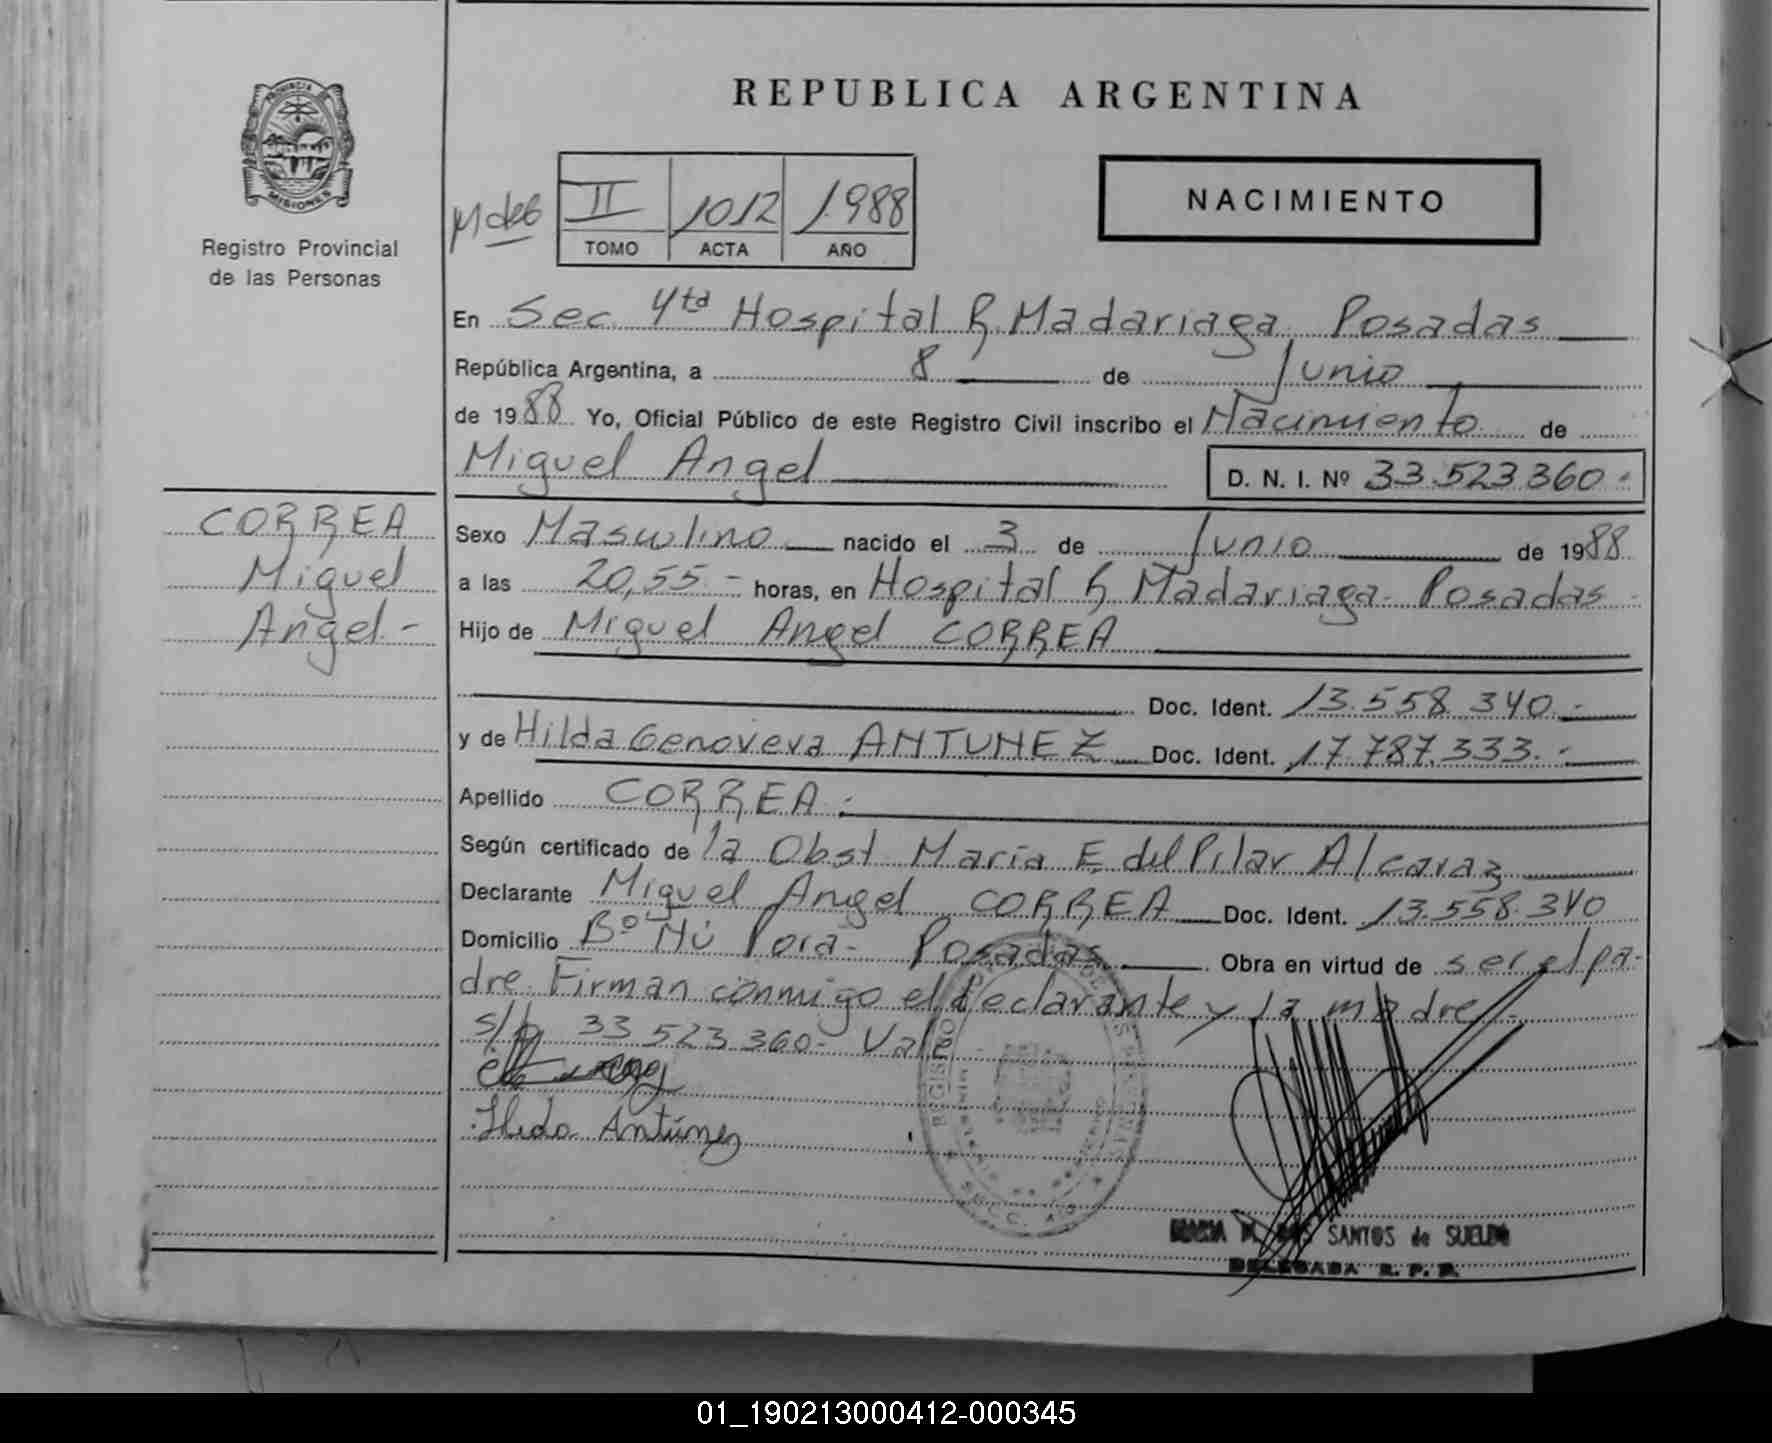 REPUBLICA ARGENTINA
PROVINCIA DE
MISIONES
Registro Provincial
de las Personas
II 1012 1.988
TOMO ACTA AÑO
NACIMIENTO
En Sec. 4ta Hospital R. Madariaga Posadas
República Argentina, a 8 de Junio
de 1988 Yo, Oficial Público de este Registro Civil inscribo el Nacimiento de
Miguel Angel D. N. I. Nº 33.523.360.-
CORREA
Miguel
Angel.-
Sexo Masculino nacido el 3 de Junio de 1988
a las 20,55.- horas, en Hospital R. Madariaga. Posadas
Hijo de Miguel Angel CORREA
Doc. Ident. 13.558.340.-
y de Hilda Genoveva ANTUNEZ Doc. Ident. 17.787.333.-
Apellido CORREA.
Según certificado de la Obst. Maria E. del Pilar Alcaraz
Declarante Miguel Angel CORREA Doc. Ident. 13.558.340
Domicilio Bº Ñú Porá- Posadas. Obra en virtud de ser el pa-
dre. Firman conmigo el declarante y la madre.-
s/b 33.523.360- Vale
Hilda Antúnez
SANTOS de SUELDO
DELEGADA R. P. P.
01_190213000412-000345